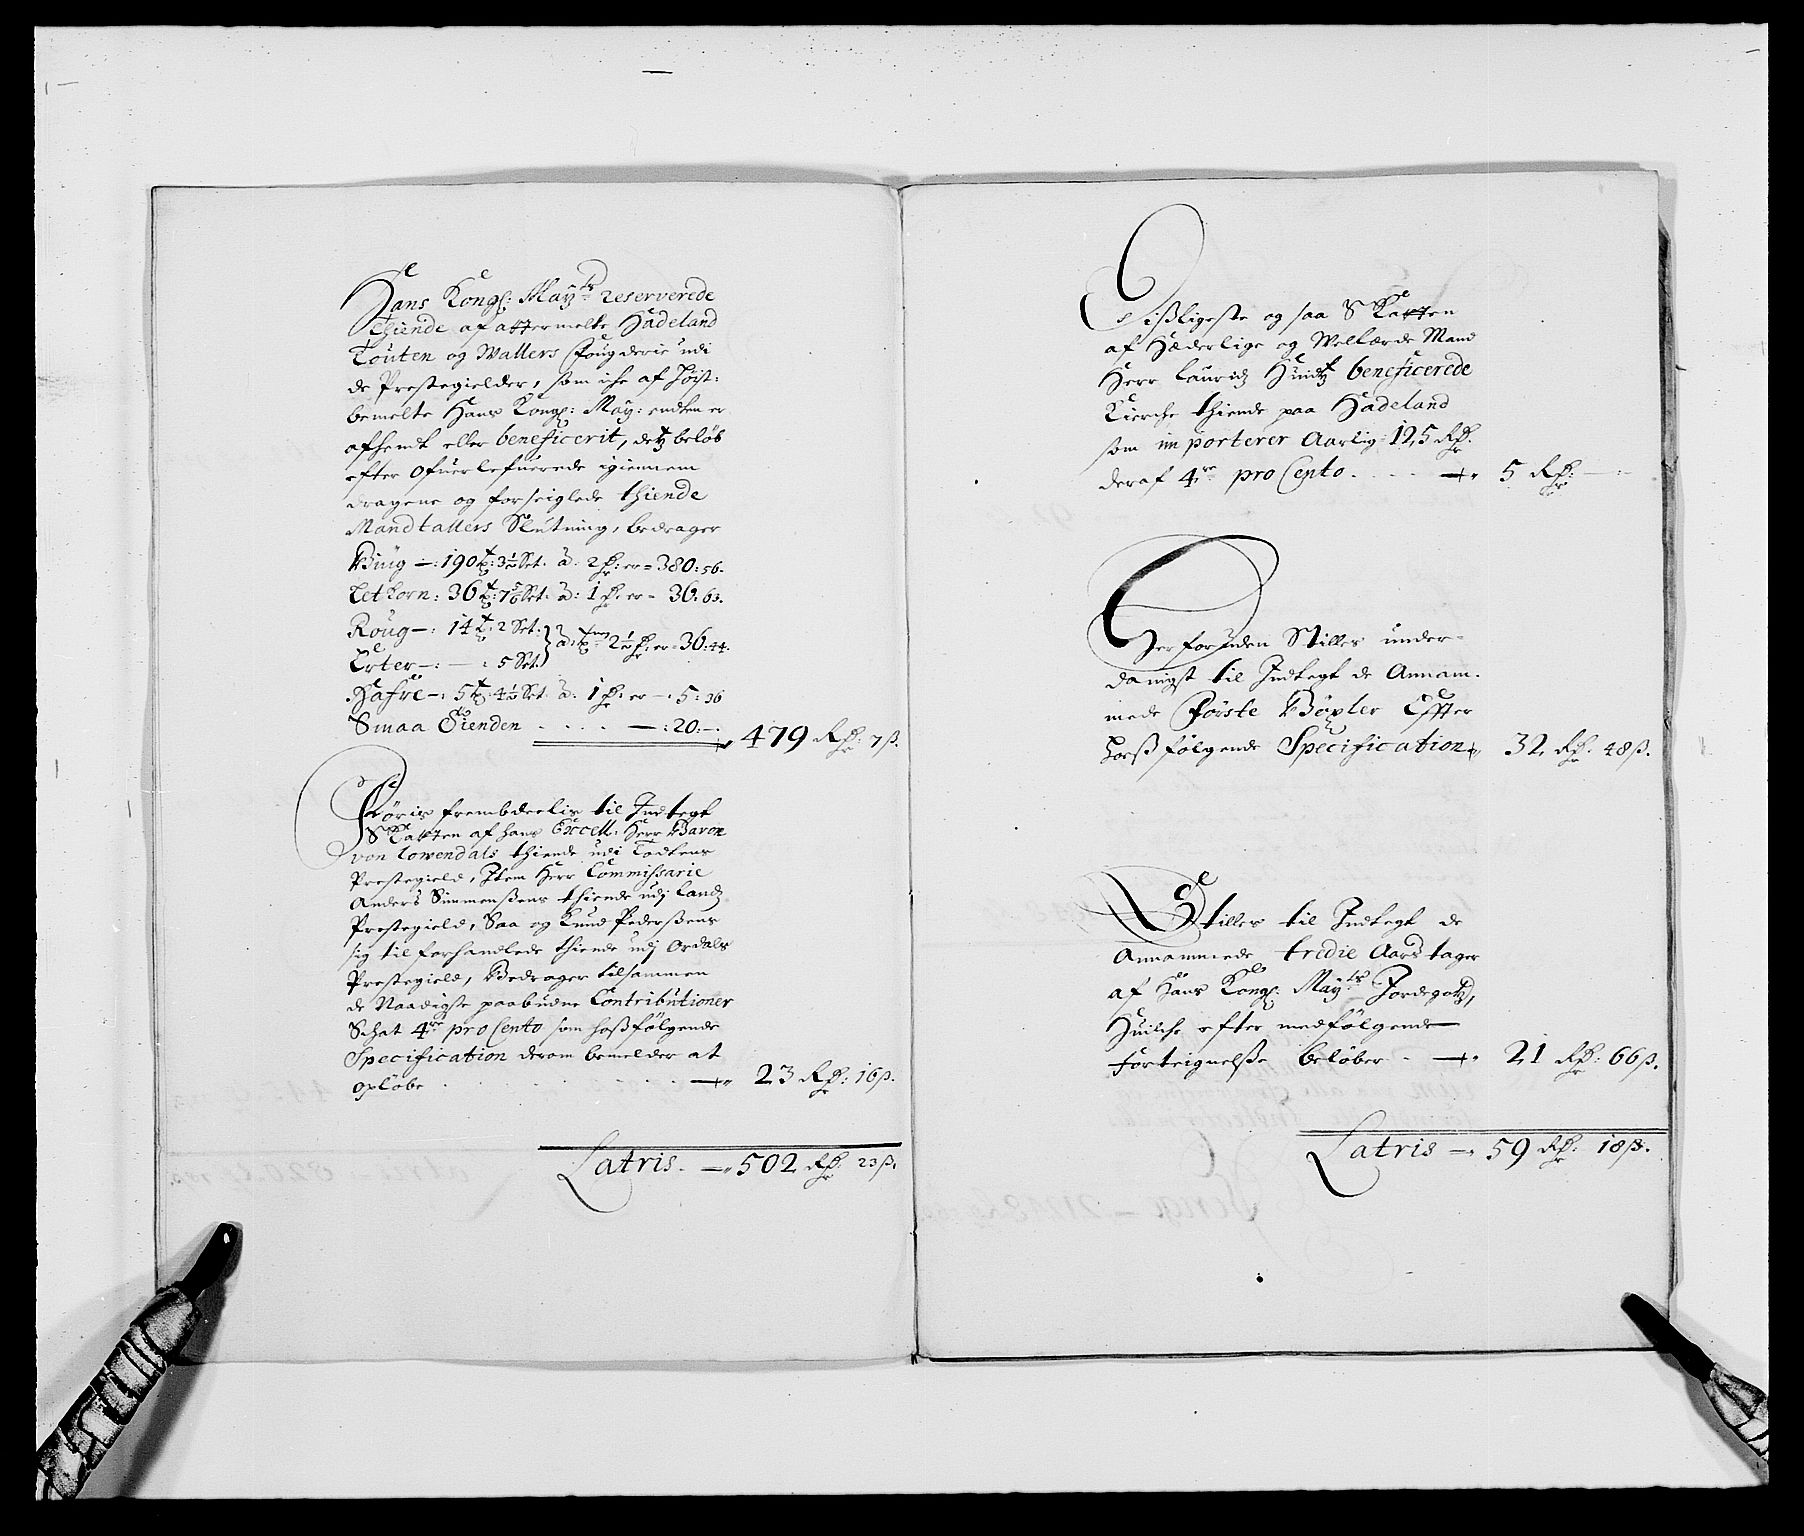 Hans Kongl: Mayts reserverede
Thiende af attermelte Hadeland
Touten og Wallers Fougderie udi
de Prestegielder, som iche af höist:
bemelte Hans Kongl: May: endten er
afhendt eller beneficerit, dets beløb
efter ofuerlefuerede igiennem
dragene og forseiglede thiende
Mandtallers Slutning, bedrager
Biug —: 190 tr: 3½ Set. à. 2 Rdr: er = 380: 56.
Letkorn: 36 tr: 7 5/6 Set. à: 1 Rdr: er - 36. 63.
Roug —: 14 tr: 2 Set:
Erter —: — : 5 Set: } à tr 2½ Rdr: er = 36: 44.
Hafre —: 5 tr: 4½ Set. à. 1 Rdr: er —: 5: 36
Smaa Tienden . . . . —: 20: —. 479 Rdr: 7 ß.
Föris frembdeelis til Indtegt
Skatten af hans Excell: Herr Baron
von Lowendals thiende udi Todtens
Prestegield, Item Herr Commissarie
Anders Simmensens thiende udj Landz
Prestegield, Saa og Knud Pedersens
sig til forhandlede thiende udj Ordals
Prestegield, Bedrager tilsammen
de Naadigste paabudne Contributioner
Schat 4re pro Cento som hoßfølgende
Specification derom bemelder at
opløbe . . . . . 23 Rdr: 16 ß.
Latris. — 502 Rdr: 23 ß.
Dißligeste og saa Skatten
af Hæderlige og Wellærde Mand
Herr Lauridz Hundtz beneficerede
Kierche thiende paa Hadeland
som importerer Aarlig: 125 Rdr.
deraf 4re pro Cento. . . . — 5 Rdr: — : -
Herforuden Stilles under=
danigst til Indtegt de Annam.
mede Förste Böxler Effter
Hoßfølgende Specification 32 Rdr. 48 ß.
Stilles til Indtegt de
Annammede tredie Aars tager
af Hans Kongl: Mayts Jordegodtz,
Huilche efter medfølgende
Forteignelße beløber . — 21 Rdr: 66 ß.
Latris — 59 Rdr: 18 ß.